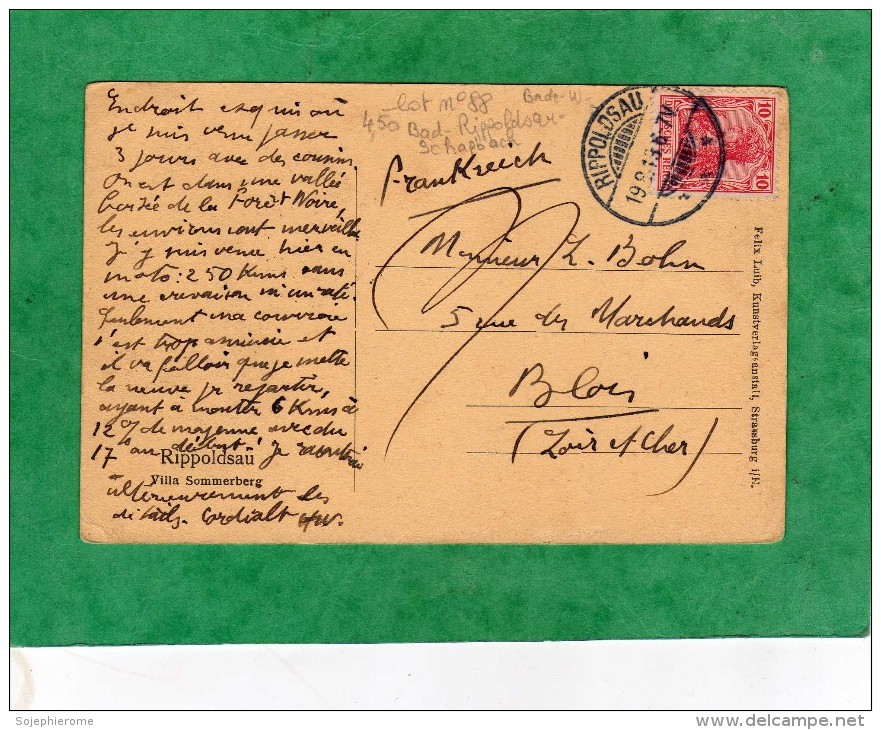 Endroit exquis où
je suis venu passer
3 jours avec des cousins.
on est dans une vallée
boisée de la Forêt Noire,
les environs sont merveilleux
J'y suis venu hier en
moto : 250 Kms sans
une crevaison ni un raté.
Seulement ma courroie
s'est trop amincie et
il va falloir que je mette
la neuve pr repartir,
ayant à monter 6 Kms à
12 % de moyenne avec du
17 % au début ! je
Rippoldsau
Villa Sommerberg
ultérieurement les
détails. Cordialt
lot n° 88
Bade-W
4,50 Bad-Rippoldsau-
Schapbach
Frankreich
RIPPOLDSAU
19.8.13.6-7N
10 DEUTSCHES REICH 10
Monsieur L. Bohn
5 rue des Marchands
Blois
(Loir et Cher)
Felix Luib, Kunstverlagsanstalt, Strassburg i/E.
Sojephierome
www.delcampe.net